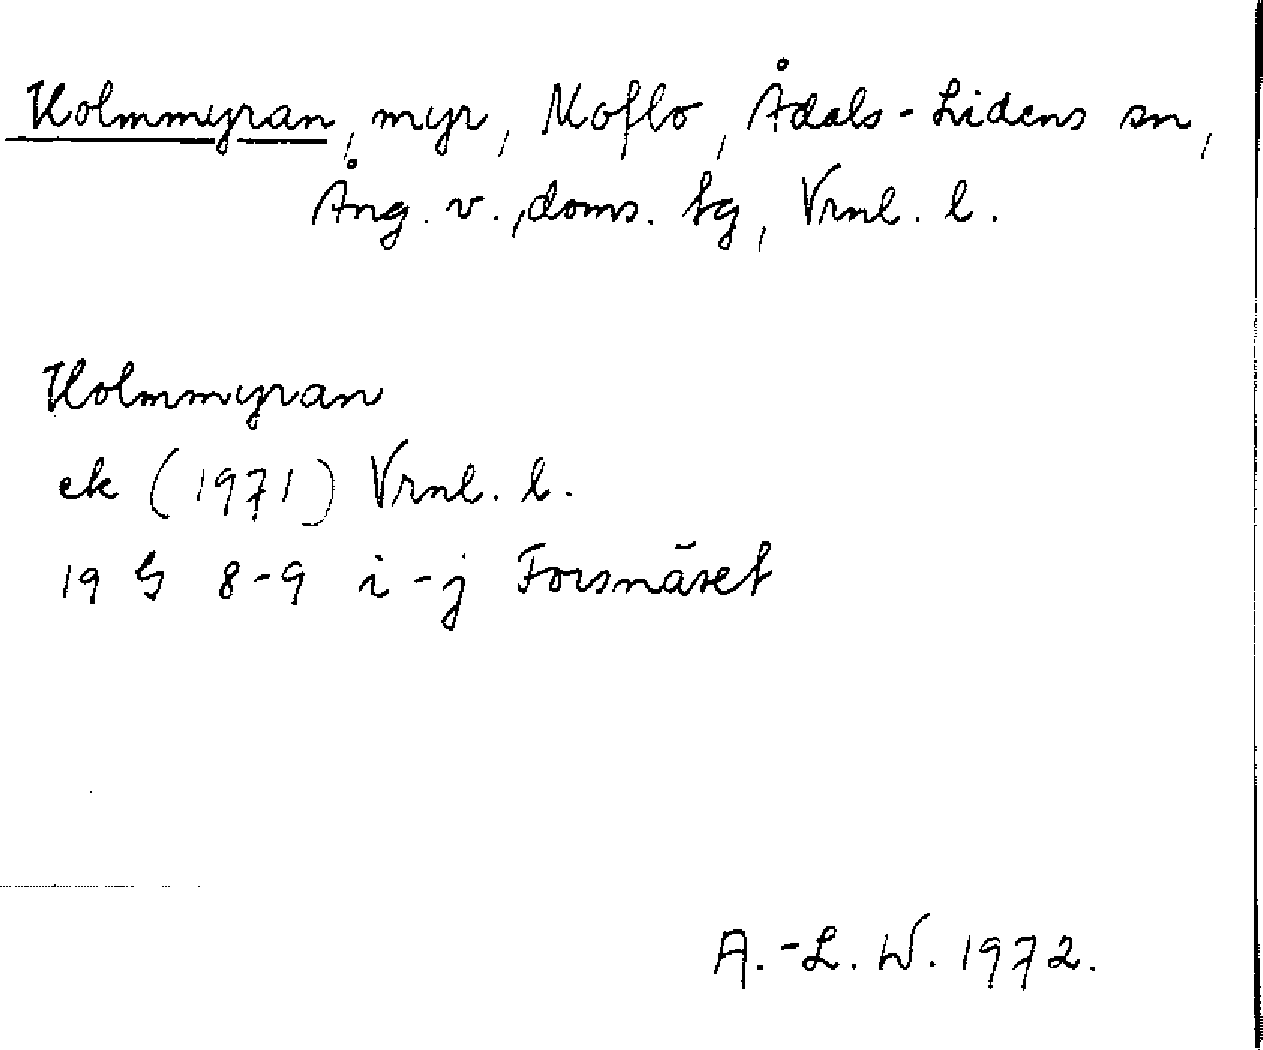 Holmmyran, myr, Moflo, Ådals-Lidens sn,
Ång. v., doms. tg, Vrnl. l.
Holmmyran
ek (1971) Vrnl. l.
19 G 8-9 i-j Forsnäset
A.-L. W. 1972.